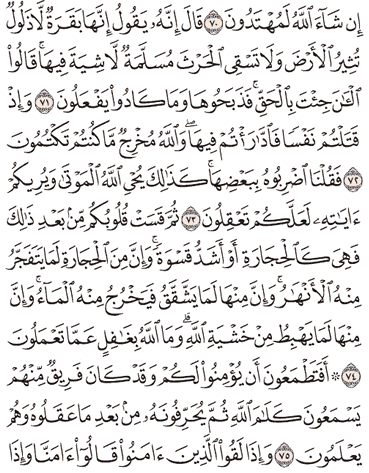 إِن شَآءَ ٱللَّهُ لَمُهْتَدُونَ ٧٠ قَالَ إِنَّهُۥ يَقُولُ إِنَّهَا بَقَرَةٌ لَّا ذَلُولٌ
تُثِيرُ ٱلْأَرْضَ وَلَا تَسْقِى ٱلْحَرْثَ مُسَلَّمَةٌ لَّا شِيَةَ فِيهَا ۚ قَالُوا۟
ٱلْـَٔـٰنَ جِئْتَ بِٱلْحَقِّ ۚ فَذَبَحُوهَا وَمَا كَادُوا۟ يَفْعَلُونَ ٧١ وَإِذْ
قَتَلْتُمْ نَفْسًا فَٱدَّٰرَْٰٔتُمْ فِيهَا ۖ وَٱللَّهُ مُخْرِجٌ مَّا كُنتُمْ تَكْتُمُونَ
٧٢ فَقُلْنَا ٱضْرِبُوهُ بِبَعْضِهَا ۚ كَذَٰلِكَ يُحْىِ ٱللَّهُ ٱلْمَوْتَىٰ وَيُرِيكُمْ
ءَايَـٰتِهِۦ لَعَلَّكُمْ تَعْقِلُونَ ٧٣ ثُمَّ قَسَتْ قُلُوبُكُم مِّنۢ بَعْدِ ذَٰلِكَ
فَهِىَ كَٱلْحِجَارَةِ أَوْ أَشَدُّ قَسْوَةً ۚ وَإِنَّ مِنَ ٱلْحِجَارَةِ لَمَا يَتَفَجَّرُ
مِنْهُ ٱلْأَنْهَـٰرُ ۚ وَإِنَّ مِنْهَا لَمَا يَشَّقَّقُ فَيَخْرُجُ مِنْهُ ٱلْمَآءُ ۚ وَإِنَّ
مِنْهَا لَمَا يَهْبِطُ مِنْ خَشْيَةِ ٱللَّهِ ۗ وَمَا ٱللَّهُ بِغَـٰفِلٍ عَمَّا تَعْمَلُونَ
٧٤ ۞ أَفَتَطْمَعُونَ أَن يُؤْمِنُوا۟ لَكُمْ وَقَدْ كَانَ فَرِيقٌ مِّنْهُمْ
يَسْمَعُونَ كَلَـٰمَ ٱللَّهِ ثُمَّ يُحَرِّفُونَهُۥ مِنۢ بَعْدِ مَا عَقَلُوهُ وَهُمْ
يَعْلَمُونَ ٧٥ وَإِذَا لَقُوا۟ ٱلَّذِينَ ءَامَنُوا۟ قَالُوٓا۟ ءَامَنَّا وَإِذَا